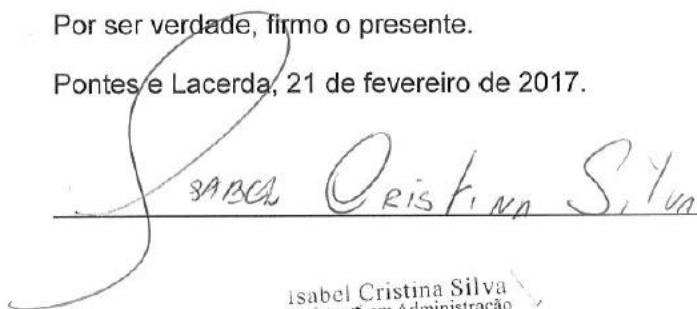 Por ser verdade, firmo o presente.
Pontes e Lacerda, 21 de fevereiro de 2017.
Isabel Cristina Silva
Isabel Cristina Silva
em Administração